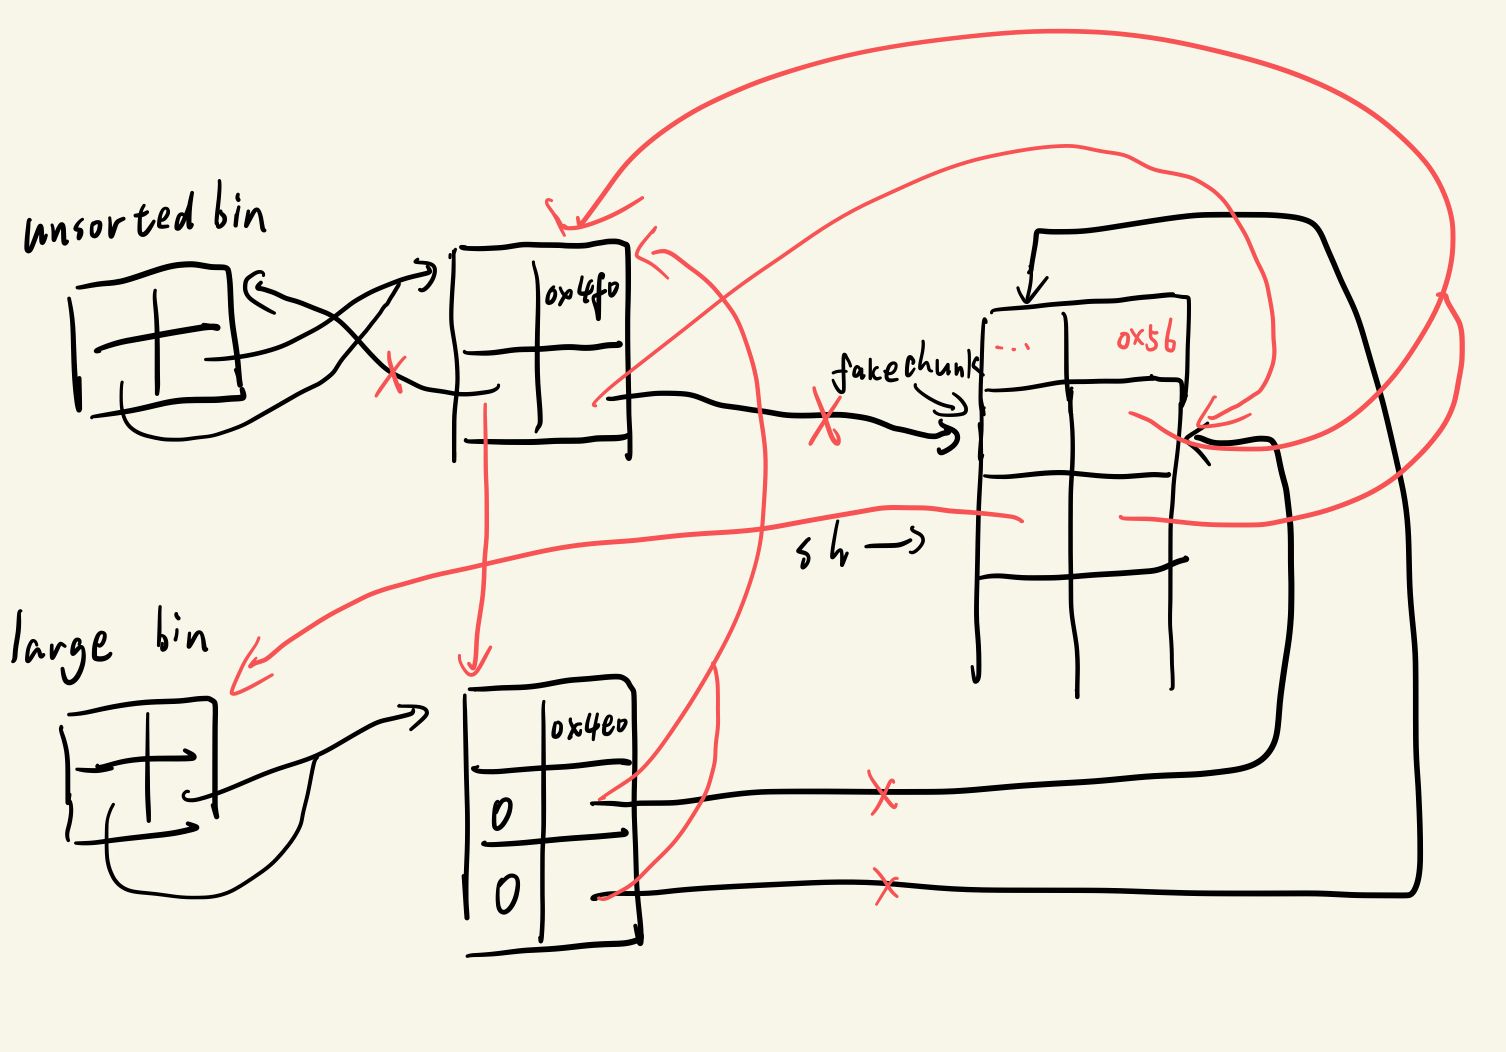 unsorted bin
0x4f0
... 0x56
fakechunk
sh →
large bin
0x4e0
0
0